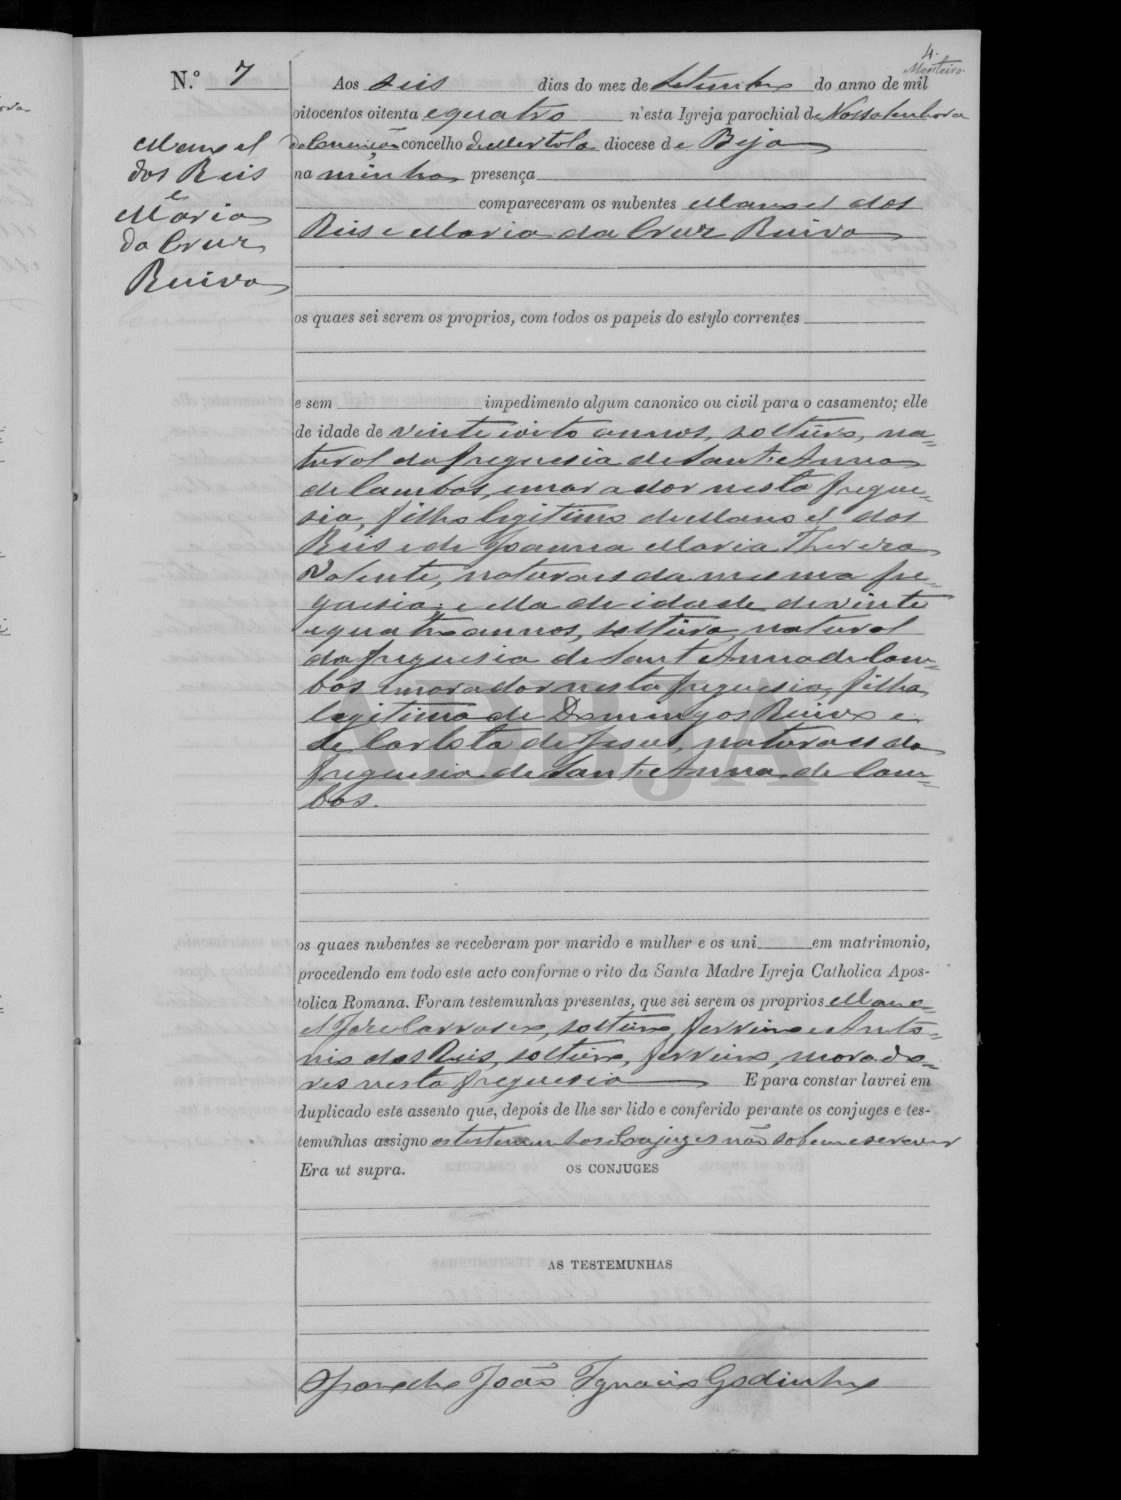 4.
Monteiro
N.º 7
Aos seis dias do mez de Setembro do anno de mil
oitocentos oitenta e quatro n'esta Igreja parochial de Nossa Senhora
da Conceição concelho de Mertola diocese de Beja
na minha presença
compareceram os nubentes Manoel dos
Reis e Maria da Cruz Ruiva
Manoel
dos Reis
e
Maria
da Cruz
Ruiva
os quaes sei serem os proprios, com todos os papeis do estylo correntes
e sem impedimento algum canonico ou civil para o casamento; elle
de idade de vinte e oito annos, solteiro, na=
tural da freguesia de Sant'Anna
de Cambas, morador nesta fregue=
sia, filho legitimo de Manoel dos
Reis e de Joanna Maria Thereza
Valente, naturaes da mesma fre=
guesia; e ella de idade de vinte
e quatro annos, solteira, natural
da freguesia de Sant'Anna de Cam=
bas morador nesta freguesia, filha
legitima de Domingos Ruivo e
de Carlota de Jesus, naturaes da
freguesia de Sant'Anna de Cam=
bas.
ADBJA
os quaes nubentes se receberam por marido e mulher e os uni em matrimonio,
procedendo em todo este acto conforme o rito da Santa Madre Igreja Catholica Apos-
tolica Romana. Foram testemunhas presentes, que sei serem os proprios Mano=
el José, solteiro, ferreiro e Anto=
nio dos Reis, solteiro, ferreiro, morado=
res nesta freguesia E para constar lavrei em
duplicado este assento que, depois de lhe ser lido e conferido perante os conjuges e tes-
temunhas assigno as testemunhas e Conjuges não sabem escrever
Era ut supra.
OS CONJUGES
AS TESTEMUNHAS
O parocho João Ignacio Godinho